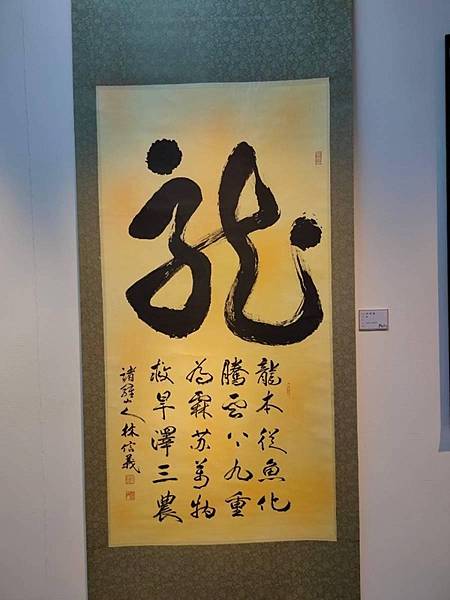 龍
龍本從魚化
騰雲上九重
為霖蘇萬物
救旱澤三農
諸羅山人林信義